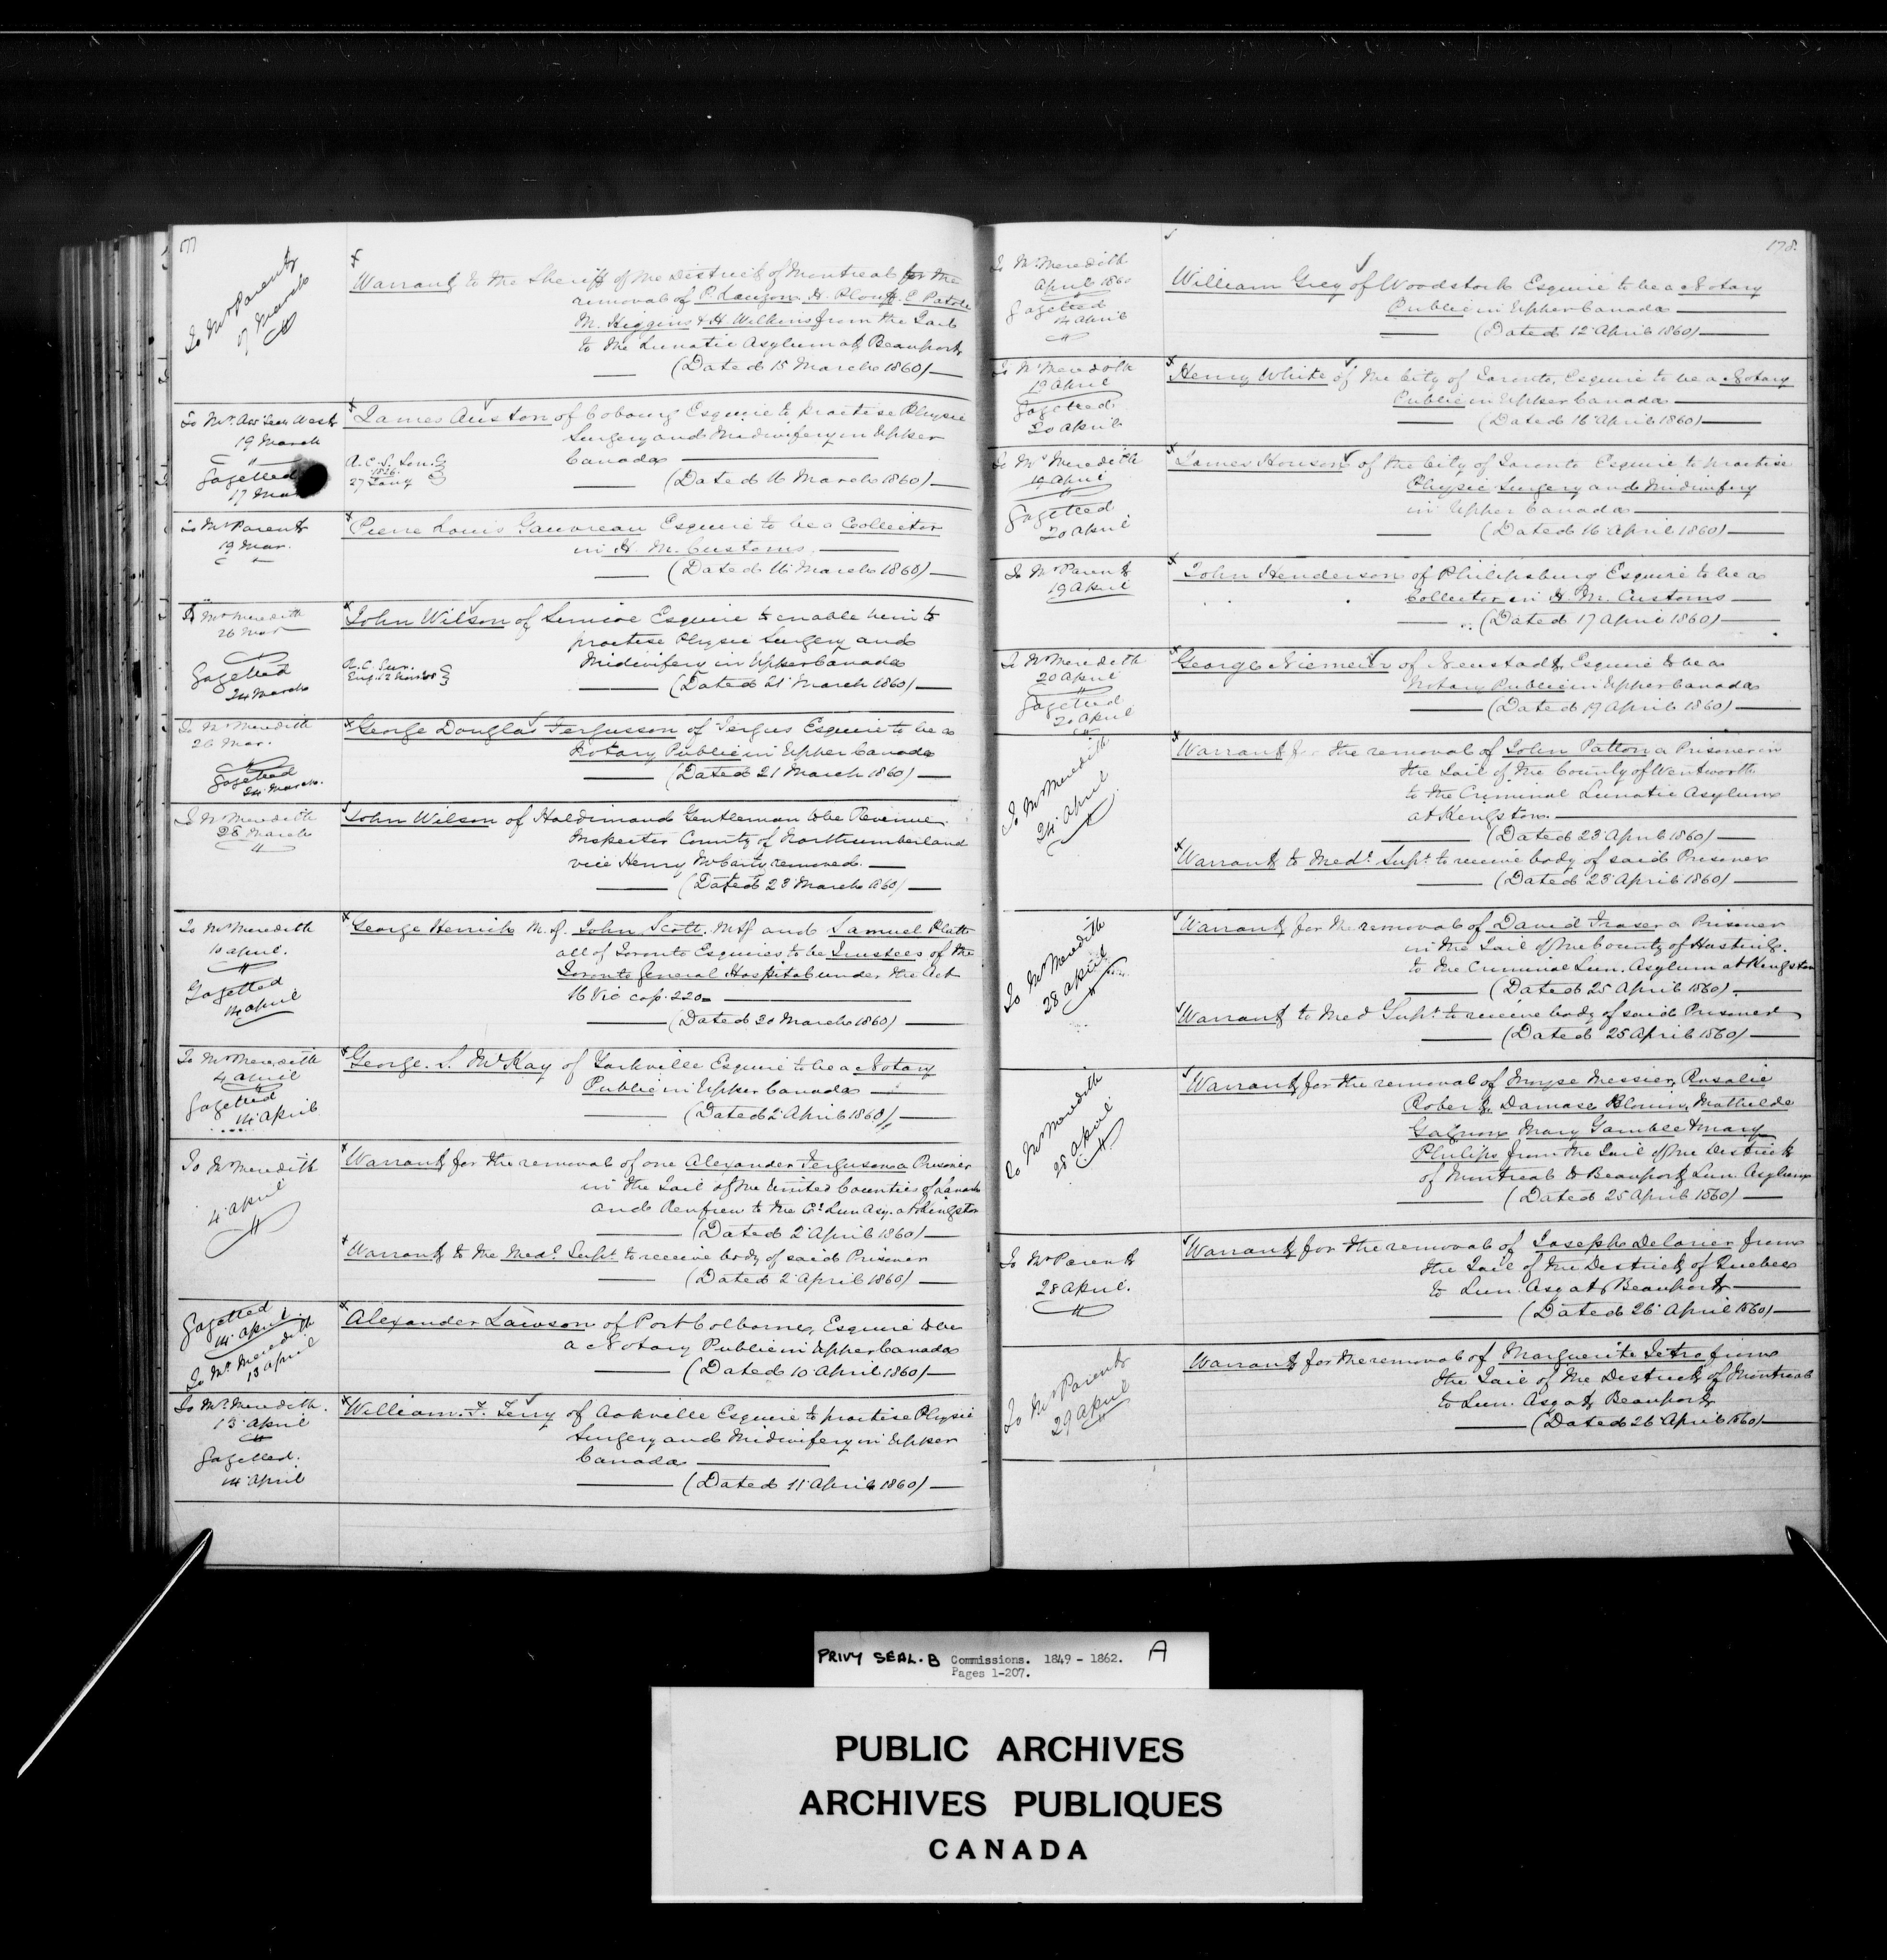 177
To Mr Parent
March
Warrant to the Sheriff of the District of Montreal for the
removal of P. Lauzon, H. Plouf, E Patole
M. Higgins & H Wilkins from the Gaol
to the Lunatic Asylum at Beauport
(Dated 15 March 1860)
To Mr Ass Secy West
19 March
Gazetted
17 Mar
James Auston of Cobourg Esquire to practise Physic
Surgery and Midwifery in Upper
Canada
27 Jany
(Dated 16 March 1860)
To Mr Parent
19 Mar.
Pierre Louis Gauvreau Esquire to be a Collector
in H. M. Customs.
(Dated 16 March 1860)
To Mr Meredith
26 Mar
Gazetted
24 March
John Wilson of Simcoe Esquire to enable him to
practise Physic Surgery and
Midwifery in Upper Canada
(Dated 21 March 1860)
To Mr Meredith
26 Mar.
Gazetted
24 March.
George Douglas Fergusson of Fergus Esquire to be a
Notary Public in Upper Canada
(Dated 21 March 1860)
To Mr Meredith
28 March
John Wilson of Haldimand Gentleman to be Revenue
Inspector County of Northumberland
vice Henry McCarty removed.
(Dated 23 March 1860)
To Mr Meredith
10 April.
Gazetted
14 April
George Herrick M.D. John Scott. M.D and Samuel Platt
all of Toronto Esquires to be Trustees of the
Toronto General Hospital under the Act
16 Vic cap. 220
(Dated 30 March 1860)
To Mr Meredith
4 April
Gazetted
14 April
George. S. McKay of Yorkville Esquire to be a Notary
Public in Upper Canada
(Dated 2 April 1860)
To Mr Meredith
4 April
Warrant for the removal of one Alexander Ferguson a Prisoner
in the Gaol of the United Counties of Lanark
and Renfrew to the Cl Lun Asy. at Kingston
(Dated 2 April 1860)
Warrant to the Medl Supt to receive body of said Prisoner
(Dated 2 April 1860)
Gazetted
14 April
To Mr Meredith
13 April
Alexander Lawson of Port Colborne, Esquire to be
a Notary Public in Upper Canada
(Dated 10 April 1860)
To Mr Meredith.
13 April
Gazetted.
14 April
William. F. Terry of Oakville Esquire to practise Physic
Surgery and Midwifery in Upper
Canada
(Dated 11 April 1860)
178.
To Mr Meredith
April 1860
Gazetted
14 April
William Grey of Woodstock Esquire to be a Notary
Public in Upper Canada
(Dated 12 April 1860)
To Mr Meredith
19 April
Gazetted
20 April
Henry White of the City of Toronto, Esquire to be a Notary
Public in Upper Canada
(Dated 16 April 1860)
To Mr Meredith
19 April
Gazetted
20 April
James Howson of the City of Toronto Esquire to practise
Physic Surgery and Midwifery
in Upper Canada
(Dated 16 April 1860)
To Mr Parent
19 April
John Henderson of Philipsburg Esquire to be a
Collector in H. M. Customs
(Dated 17 April 1860)
To Mr Meredith
20 April
Gazetted
20 April
George Niemeier of Neustadt, Esquire to be a
Notary Public in Upper Canada
(Dated 19 April 1860)
To Mr Meredith
24 April
Warrant for the removal of John Patton a Prisoner in
the Gaol of the County of Wentworth
to the Criminal Lunatic Asylum
at Kingston.
(Dated 23 April 1860)
Warrant to Medl Supt to receive body of said Prisoner
(Dated 23 April 1860)
To Mr Meredith
28 April
Warrant for the removal of David Fraser a Prisoner
in the Gaol of the County of Hastings.
to the Criminal Lun. Asylum at Kingston
(Dated 25 April 1860)
Warrant to Med Supt to receive body of said Prisoner
(Dated 25 April 1860)
To Mr Meredith
28 April
Warrant for the removal of Messier, Rosalie
Robert, Damase Blouin, Mathilde
Mary Gamble & Mary
Philips from the Gaol of the District
of Montreal to Beauport Lun. Asylum
(Dated 25 April 1860)
To Mr Parent
28 April.
Warrant for the removal of Joseph Delorier from
the Gaol of the District of Quebec
to Lun. Asy at Beauport
(Dated 26 April 1860)
To Mr Parent
29 April
Warrant for the removal of Marguerite Tetro from
the Gaol of the District of Montreal
to Lun. Asy at Beauport
(Dated 26 April 1860)
PRIVY SEAL. B Commissions. 1849 - 1862. A
Pages 1-207.
PUBLIC ARCHIVES
ARCHIVES PUBLIQUES
CANADA